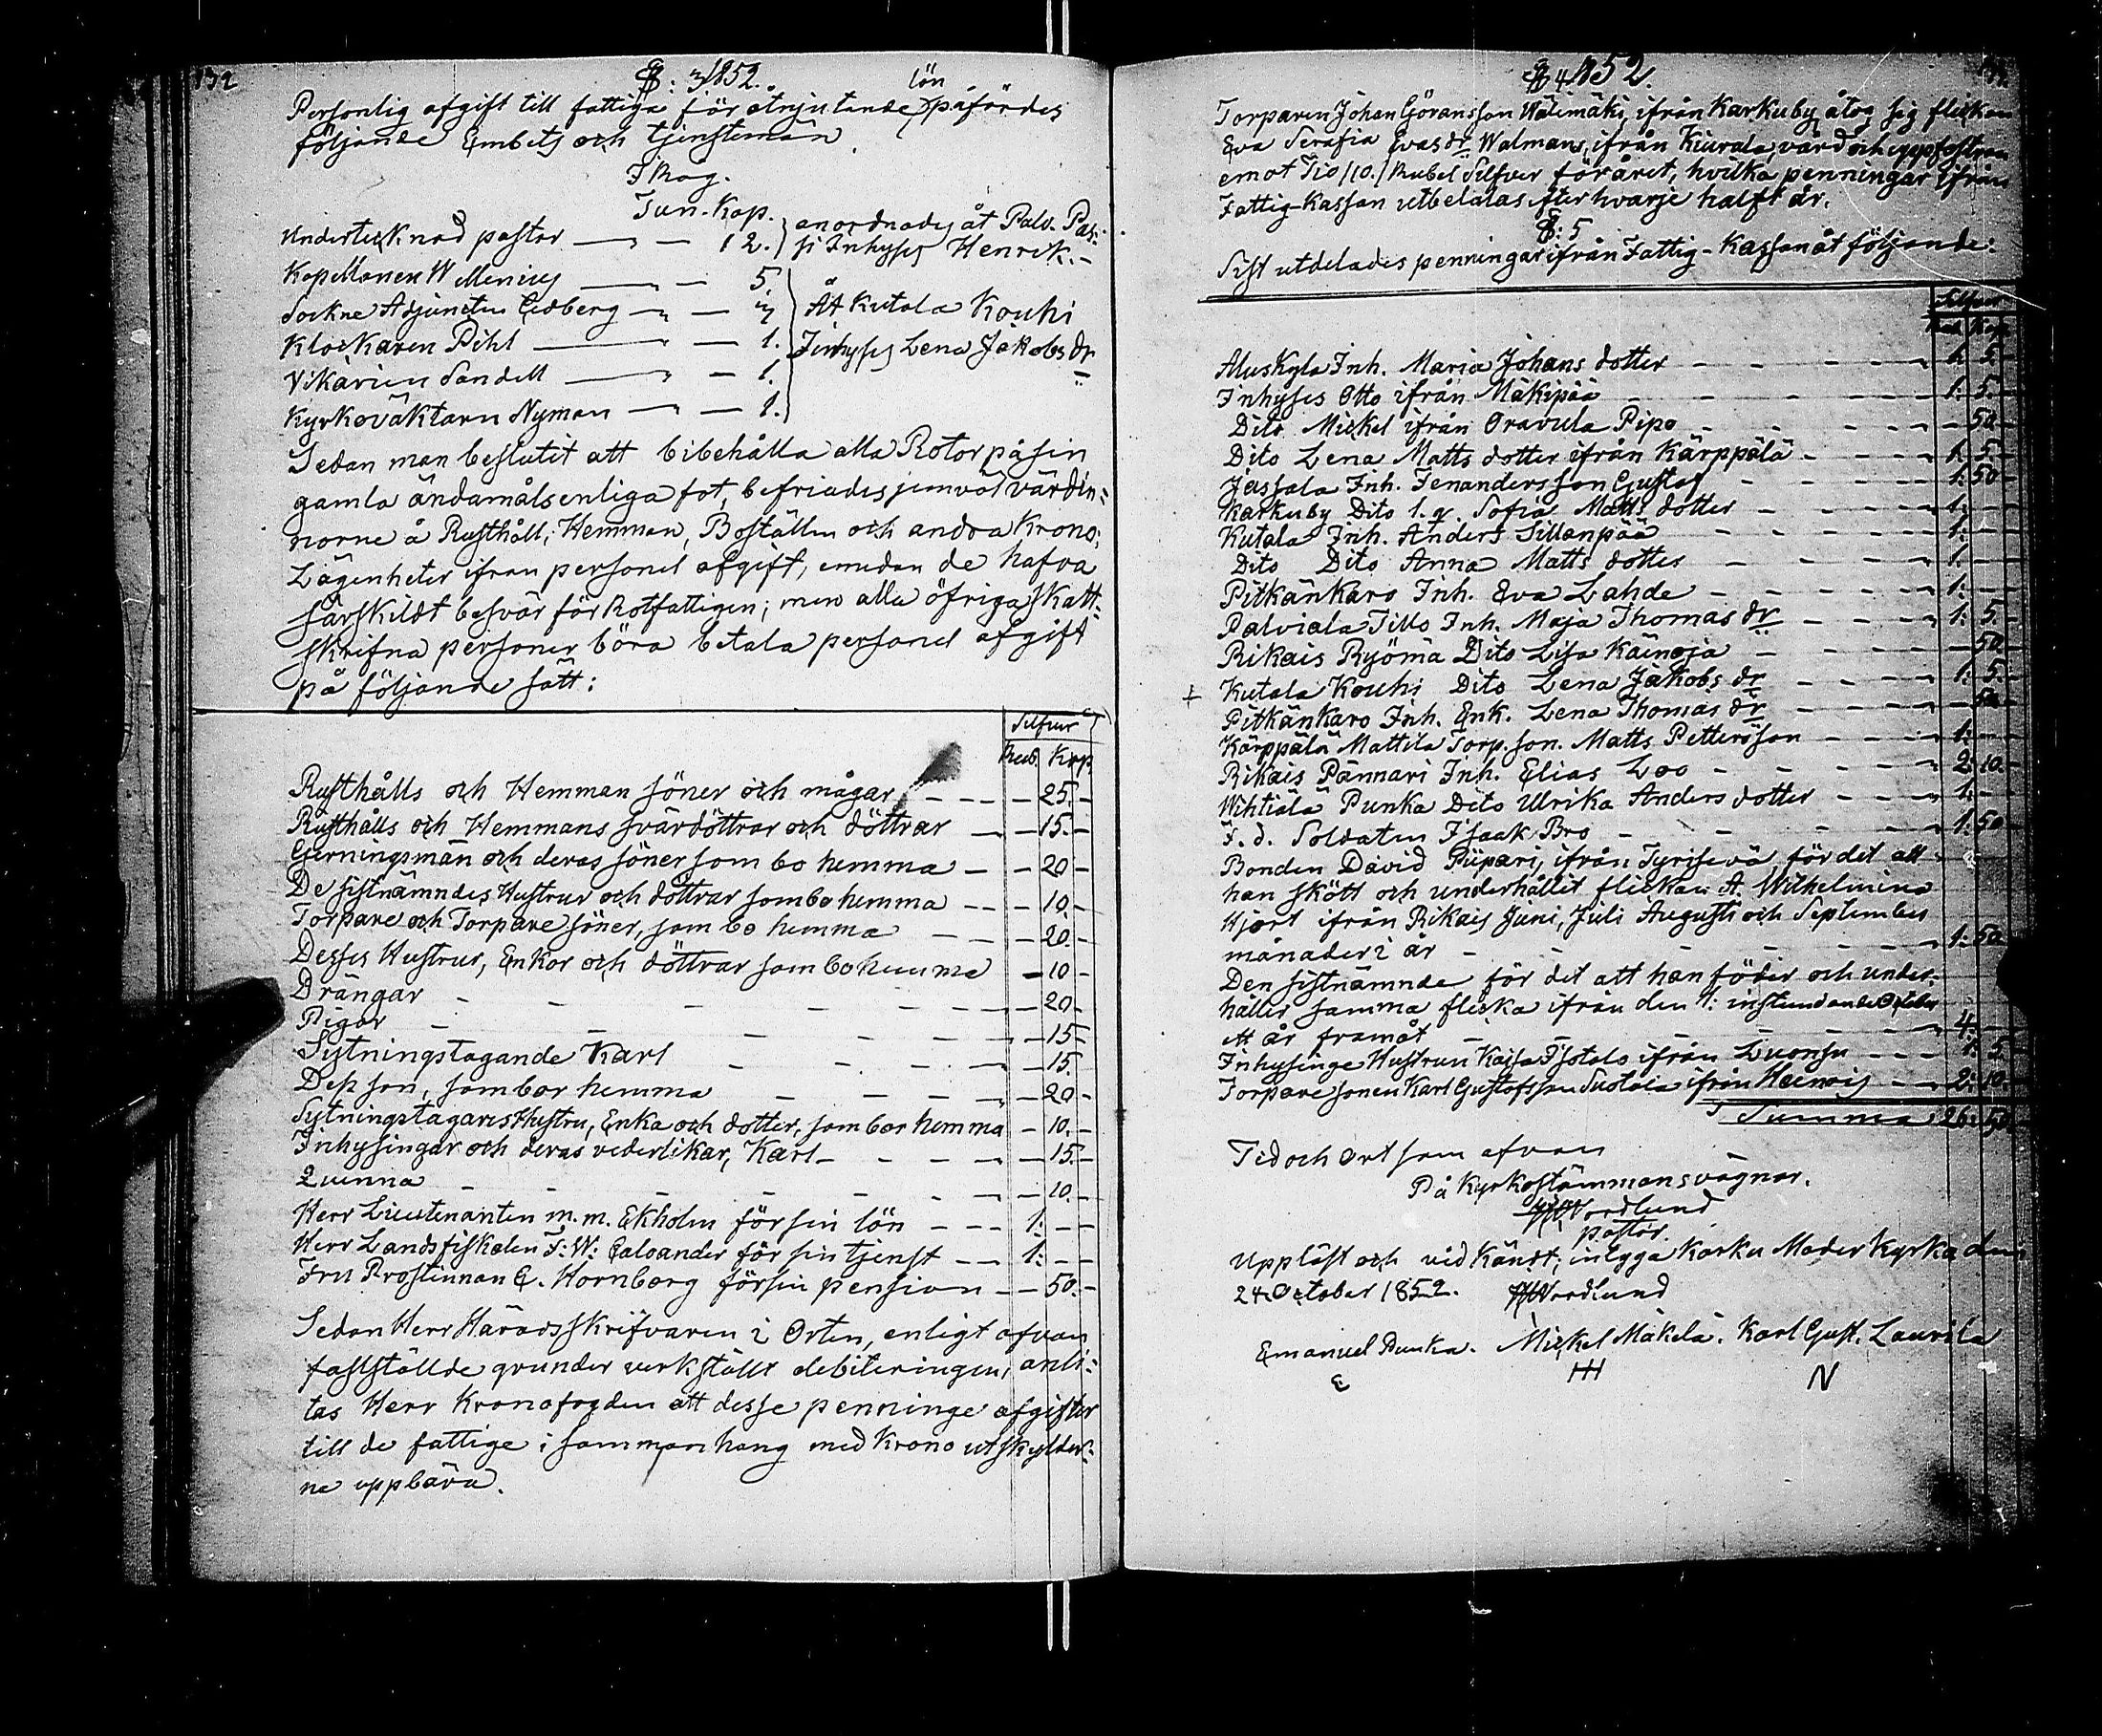 132
§: 3 1852.
Personlig afgift till fattiga för åtnjutande lön påfördes
följande Embets och tjensteman.
I Råg.
Tun. Kap.
Underteknad pastor — — 12. } anordnades åt Palv. Pas-
si Inhyses Henrik. -
Kapellanen W Menius — — 5.
Sockne Adjuncten Cedberg — — " } Åt Kutala Kouhi
Klockaren Pihl — — 1. Inhyses Lena Jakobs dr
Vikarien Sandell — — 1.
Kyrkoväktarn Nyman — — 1.
Sedan man beslutit att bibehålla alla Rotor på sin
gamla ändamålsenliga fot, befriades jemväl värdin-
norne å Rusthåll, Hemman, Boställen och andra Krono,
Lägenheter ifrån personel afgift, emedan de hafva
särskildt besvär för Rotfattigen; men alla öfriga skatt-
skrifna personer böra betala personel afgift
på följande sätt:
Silfver
Rub. Kop.
Rusthålls och Hemman söner och mågar - - - 25. -
Rusthålls och Hemmans svärdöttrar och döttrar — 15. -
Gerningsmän och deras söner som bo hemma - - 20 -
De sistnämndes Hustrur och döttrar som bo hemma - - 10. -
Torpare och Torpare söner, som bo hemma - - 20. -
Desses Hustrur, Enkor och döttrar som bo hemma - 10 -
Drängar - - - - - - 20 -
Pigor - - - - - 15 -
Sytningstagande Karl - - - - 15.
Dess son, som bor hemma - - - - 20 -
Sytningstagares Hustru, Enka och dotter, som bor hemma - 10. -
Inhysingar och deras vederlikar, Karl - - - - 15. -
Quinna - - - - - - 10. -
Herr Lieutenanten m. m. Ekholm för sin lön - - - 1: - -
Herr Landsfiskalen F: W: Caloander för sin tjenst - - 1: - -
Fru Prostinnan E. Hornborg för sin pension - - 50. -
Sedan Herr Häradsskrifvaren i Orten, enligt ofvan
fastställde grunder verkställt debiteringen, anli-
tas Herr Kronofogden att desse penninge afgifter
till de fattige i sammanhang med Krono utskylder-
na uppbära.
§ 4. 1852.
Torparen Johan Göransson Wälimäki, ifrån Karkuby åtog sig flickan
Eva Serafia Evas dr Walmans, ifrån Kiurala, vård och uppfostran
emot Tio /10./ Rubel Silfver för året, hvilka penningar ifrån
Fattig-Kassan utbetalas efter hvarje halft år.
§: 5
Sist utdelades penningar ifrån Fattig-Kassan åt följande:
Silfver
Rub. Kop.
Aluskyla Inh. Maria Johans dotter - - - - 1. 5. -
Inhyses Otto ifrån Mäkipää - - - - 1: 5. -
Dito Mickel ifrån Oravula Pipo - - - - 50 -
Dito Lena Matts dotter ifrån Kärppälä - - - - 1. 5. -
Jassala Inh. Fenandersson Gustaf - - - 1: 50 -
Karkuby Dito l. q. Sofia Matts dotter - - - 1: -
Kutala Inh. Anders Sillanpää - - - - 1: -
Dito Dito Anna Matts dotter - - - - 1. -
Pitkänkaro Inh. Eva Lahde - - - - 1: -
Palviala Tillo Inh. Maja Thomas dr - - - - 1: 5. -
Rikais Ryömä Dito Lisa Käinoja - - - - 50 -
+ Kutala Kouhi Dito Lena Jakobs dr - - - - 1: 5. -
Pitkänkaro Inh. Enk. Lena Thomas dr - - - - 50 -
Kärppälä Mattila Torp. son. Matts Pettersson - - - 1: -
Rikais Pännari Inh. Elias Loo - - - - 2: 10. -
Wihtiälä Punka Dito Ulrika Anders dotter - - - - 1: -
F. d. Soldaten Isaak Bro - - - - 1: 50
Bonden David Piipari, ifrån Tyrisevä för det att
han skött och underhållit flickan A. Wilhelmina
Hjort ifrån Rikais Juni, Juli Augusti och September
månader i år - - - - 1: 50.
Den sistnämnde för det att han föder och under-
håller samma flicka ifrån den 1: instundande October
ett år framåt - - - - 4: -
Inhysinge Hustrun Kaisa Isotalo ifrån Luonsu - - - 1: 5.
Torpare sonen Karl Gustafsson Sustala ifrån Heinois - - 2: 10.
Summa 26: 50
Tid och Ort som ofvan
På Kyrkostämmans vägnar.
Nordlund
pastor.
Uppläst och vid Kändt, intyga Karku Moder Kyrka den
24. October 1852. Nordlund
Emanuel Punka. Mickel Mäkelä. Karl Gust. Laurila
E HH N